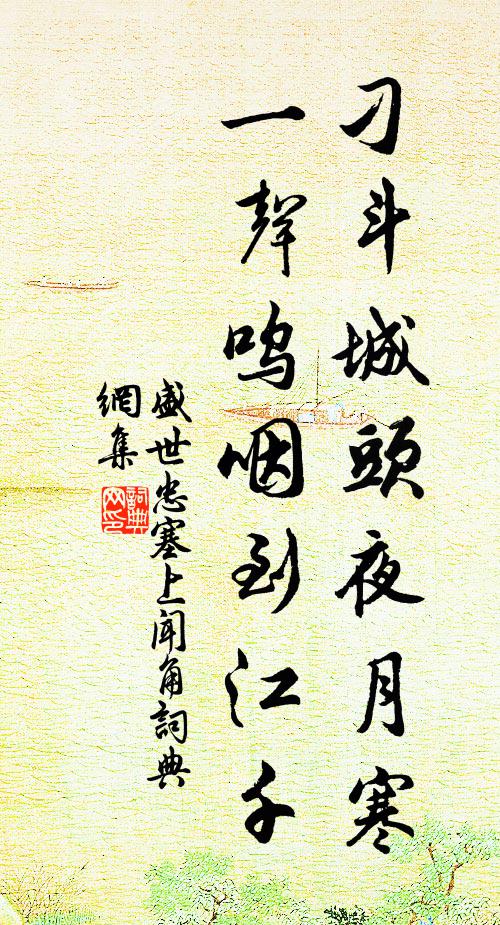 刁斗城頭夜月寒
一聲嗚咽到江干
盛世忠塞上聞角詞典
網集
詞典
网印